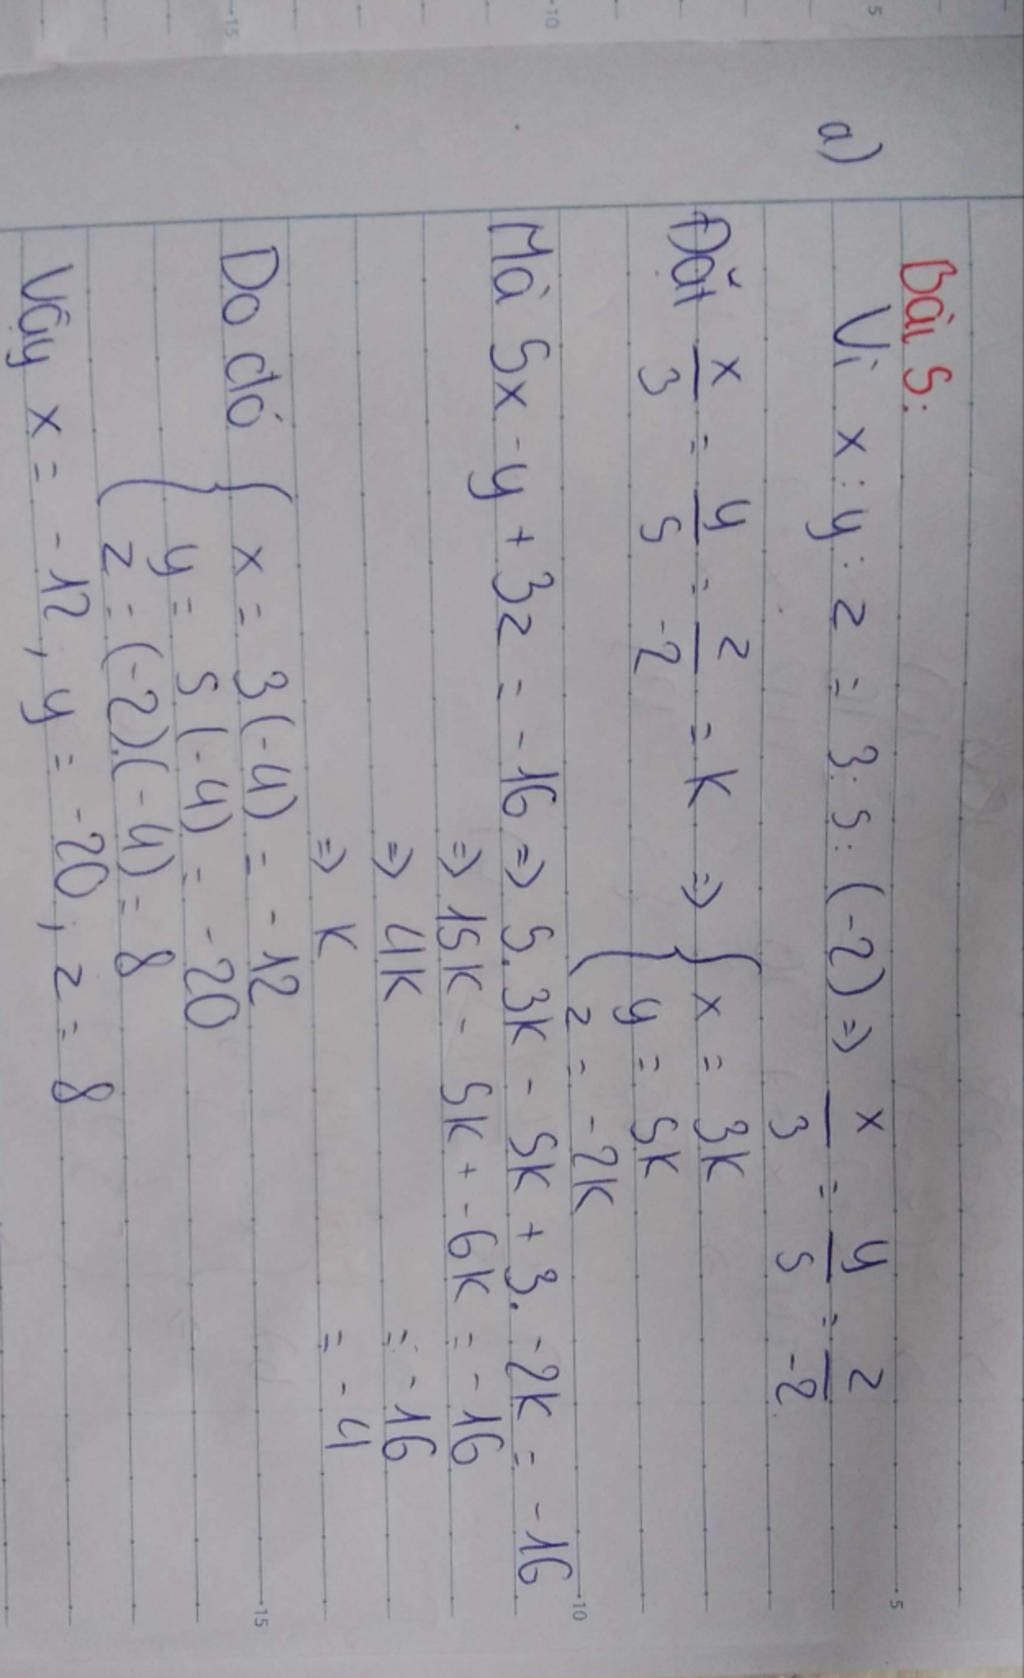 Bài 5:
a) Vì x : y : z = 3 : 5 : (-2) => x/3 = y/5 = z/-2
Đặt x/3 = y/5 = z/-2 = K => { x = 3K
y = 5K
z = -2K
Mà 5x - y + 3z = -16 => 5.3K - 5K + 3.-2K = -16
=> 15K - 5K + -6K = -16
=> 4K = -16
=> K = -4
Do đó { x = 3(-4) = -12
y = 5(-4) = -20
z = (-2).(-4) = 8
Vậy x = -12, y = -20, z = 8
5
10
15
5
-10
-15